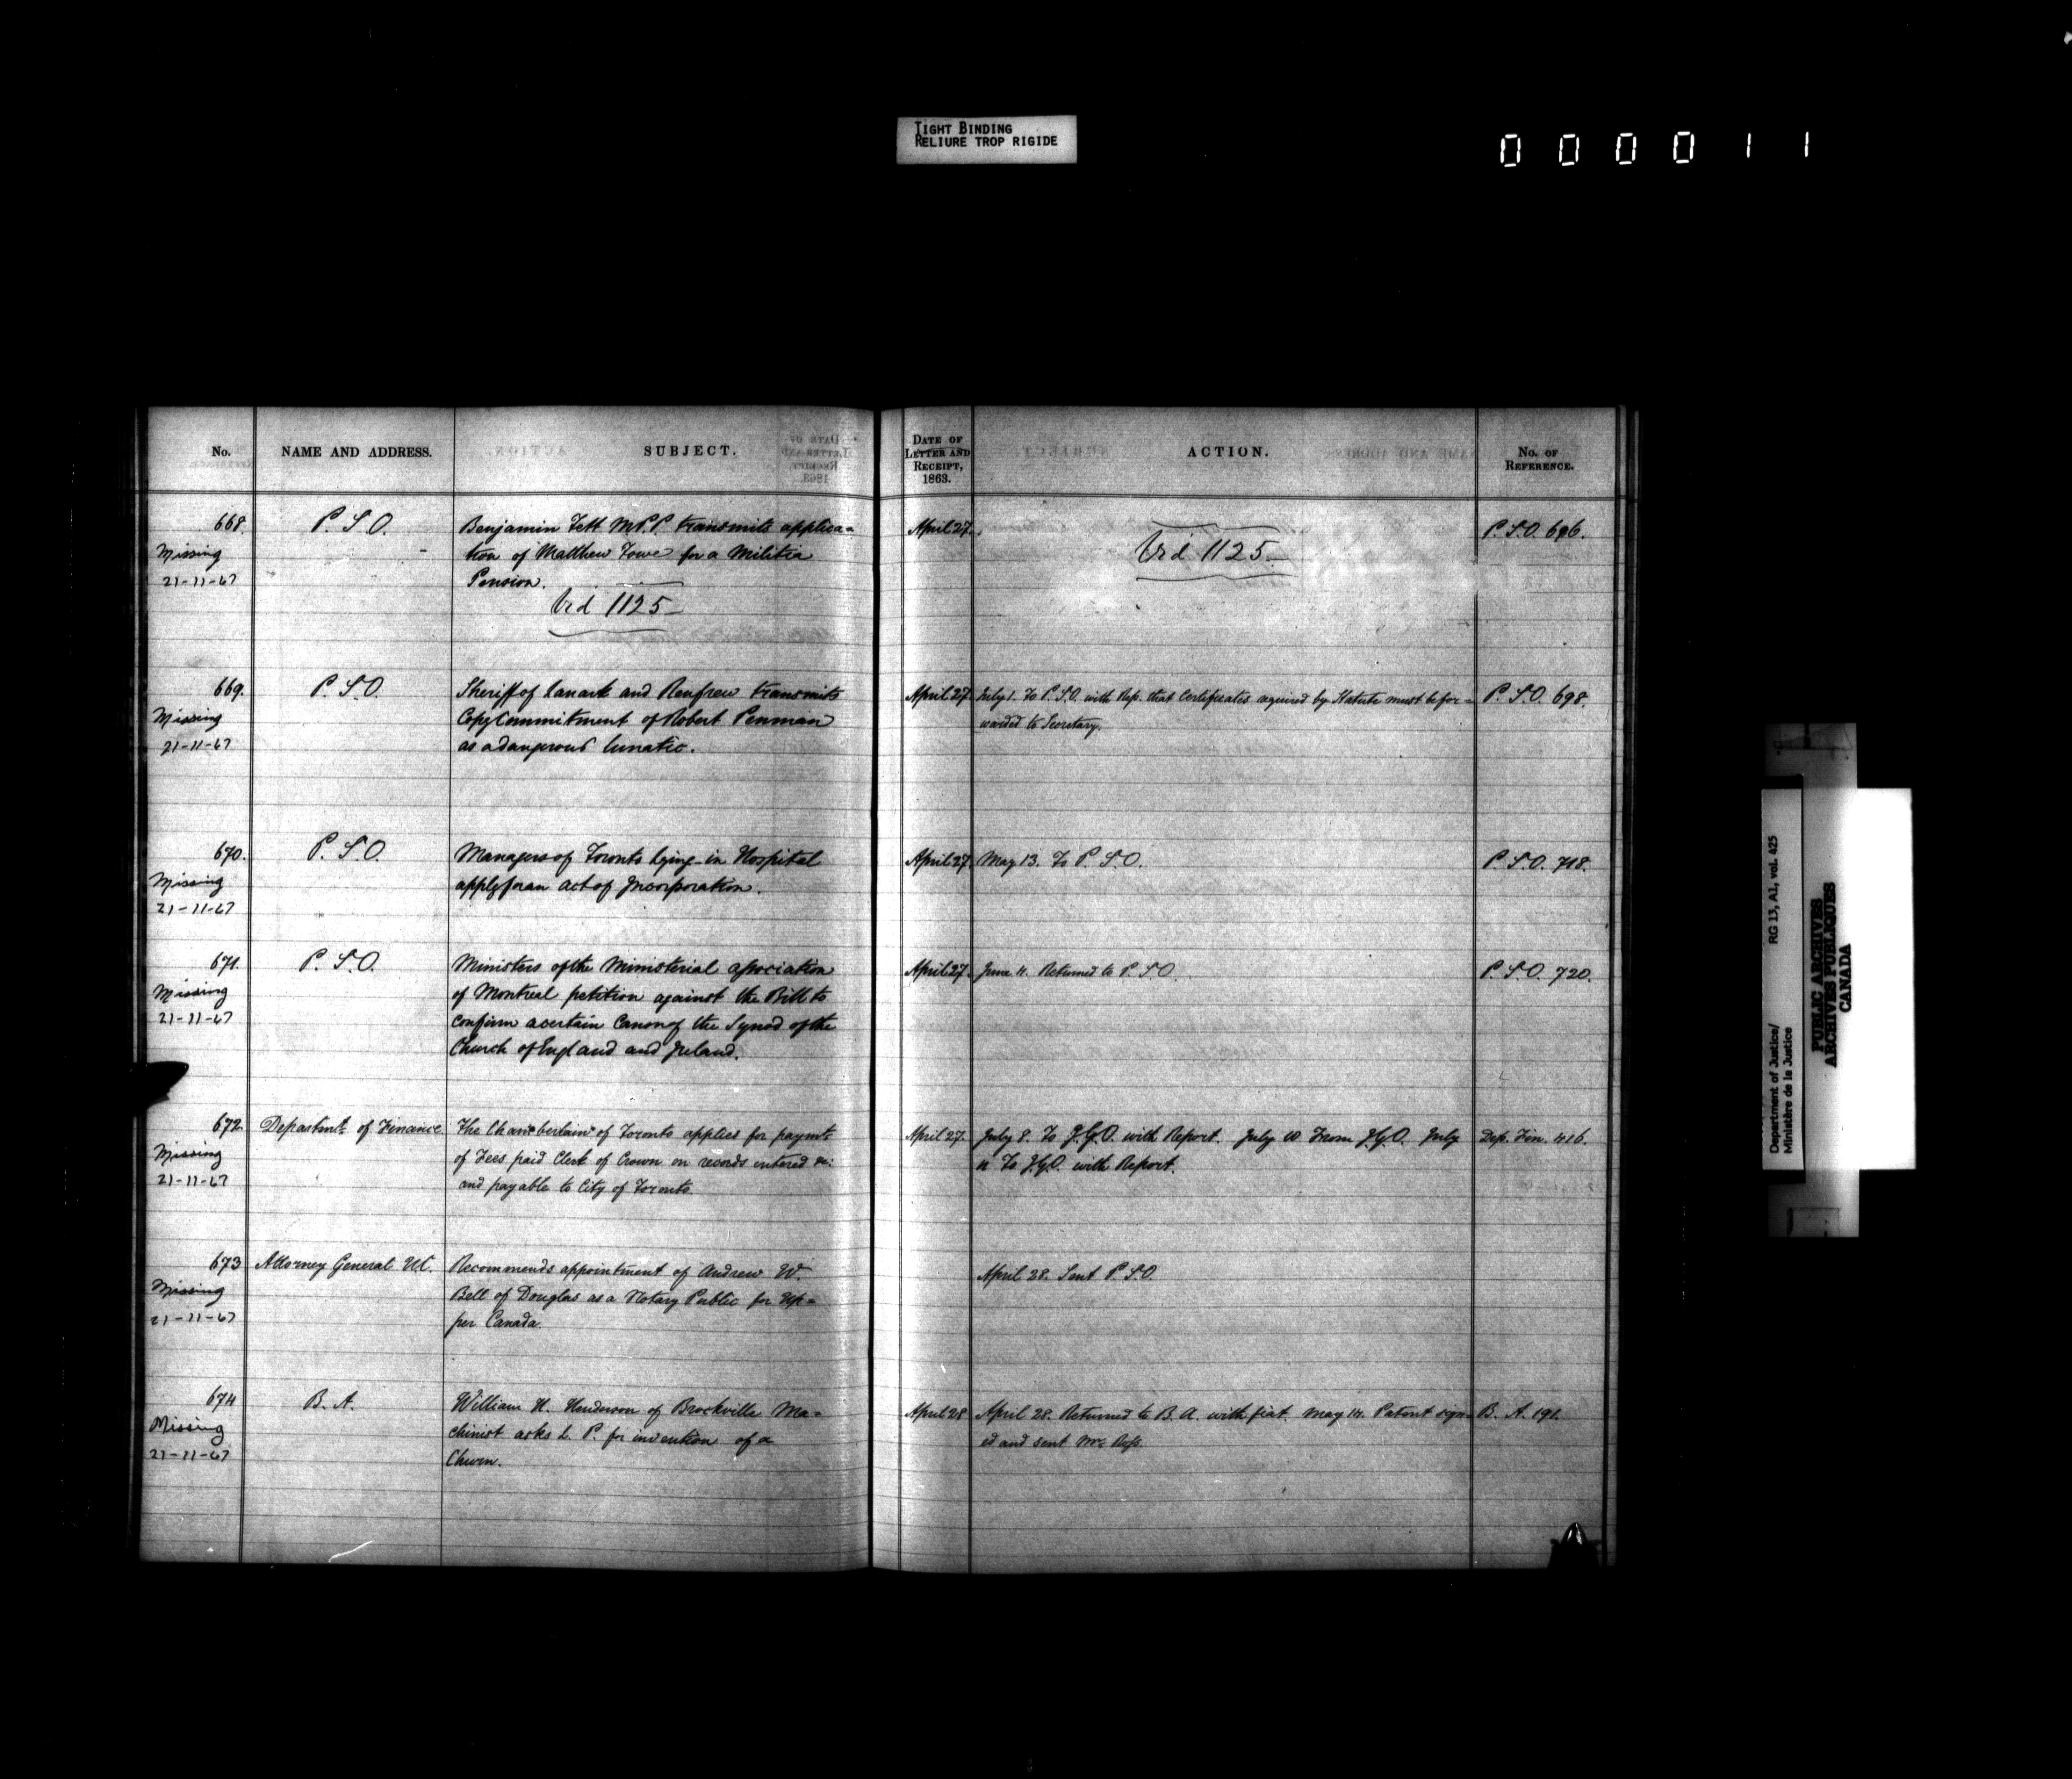 TIGHT BINDING
RELIURE TROP RIGIDE
000011
No.
NAME AND ADDRESS.
SUBJECT.
DATE OF
LETTER AND
RECEIPT,
1863.
ACTION.
No. OF
REFERENCE.
668.
Missing
21-11-67
P. S. O.
Benjamin Tett M.P.P. transmits applica=
tion of Matthew Towe for a Militia
Pension.
Vid 1125
April 27.
Vid 1125
P. S. O. 696.
669.
Missing
21-11-67
P. S. O.
Sheriff of Lanark and Renfrew transmits
Copy Commitment of Robert Penman
as a dangerous lunatic.
April 27.
July 1. To P. S. O. with Rep. that Certificates required by Statute must be for=
warded to Secretary.
P. S. O. 698.
670.
Missing
21-11-67
P. S. O.
Managers of Toronto Lying-in Hospital
apply for an act of Incorporation.
April 27.
May 13. To P. S. O.
P. S. O. 718.
671.
Missing
21-11-67
P. S. O.
Ministers of the Ministerial association
of Montreal petition against the Bill to
Confirm a certain Canon of the Synod of the
Church of England and Ireland.
April 27.
June 11. Returned to P. S. O.
P. S. O. 720.
672.
Missing
21-11-67
Departmt. of Finance.
The Chamberlain of Toronto applies for paymt.
of Fees paid Clerk of Crown on records entered &c:
and payable to City of Toronto.
April 27.
July 8. To with Report. July 10 From July
11 To with Report.
Dep. Fin. 416.
673
Missing
21-11-67
Attorney General U.C.
Recommends appointment of Andrew W.
Bell of Douglas as a Notary Public for Up=
per Canada.
April 28. Sent P. S. O.
674
Missing
21-11-67
B. A.
William H. Henderson of Brockville Ma=
chinist asks L. P. for invention of a
Churn.
April 28
April 28. Returned to B. A. with fiat. May 14. Patent sign=
ed and sent Mr. Ross.
B. A. 191.
Department of Justice/
Ministère de la Justice
RG 13, A1, vol. 425
PUBLIC ARCHIVES
ARCHIVES PUBLIQUES
CANADA